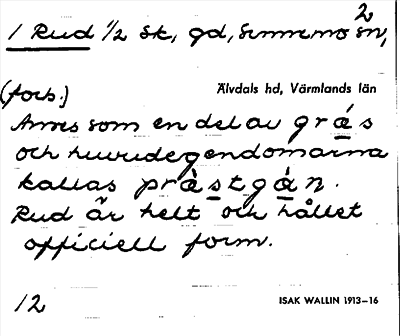 1 Rud 1/2 sk, gd, Sunnemo sn, 2
(forts.)
Älvdals hd, Värmlands län
Anses som en del av gräs
och huvudegendomarna
kallas prästgån.
Rud är helt och hållet
officiell form.
12
ISAK WALLIN 1913–16